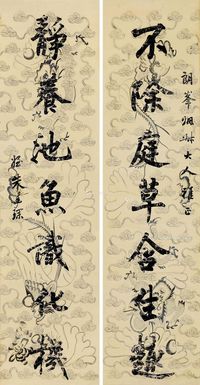 朗峯姻大人雅正
不除庭草含生趣
靜養池魚識化機
朱